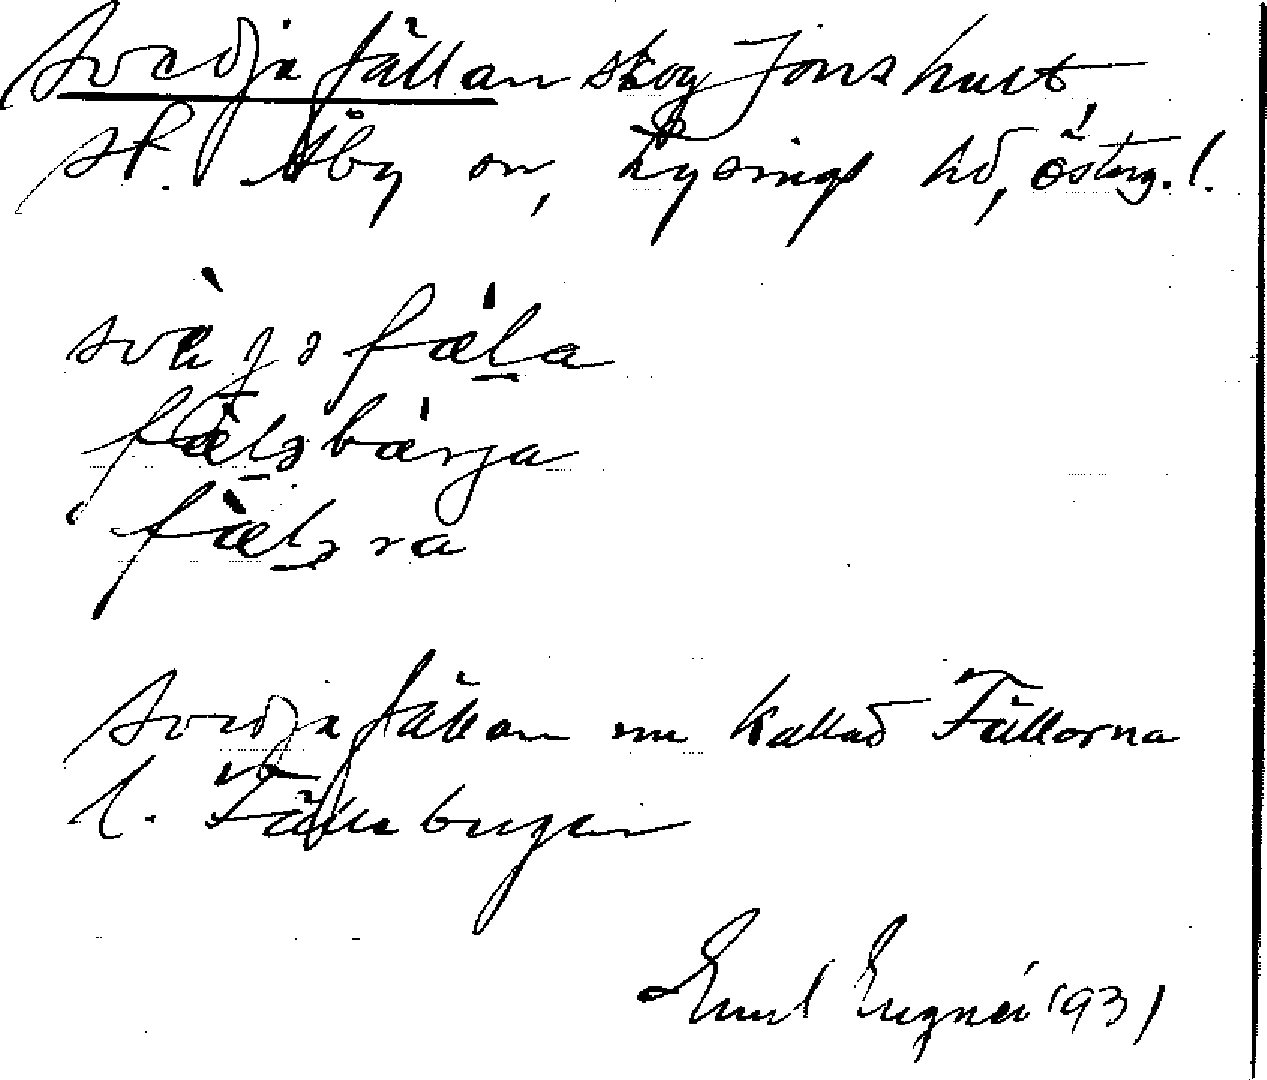 Svedjafällan skog Jonshult,
St. Åby sn, Lysings hd, Österg. l.
svè̀jəfæ̀la
fæ̀ləbærja
fæ̀ləra
Svedjafällan nu kallad Fällorna
l. Fälleberget
Emil Engnér 1931